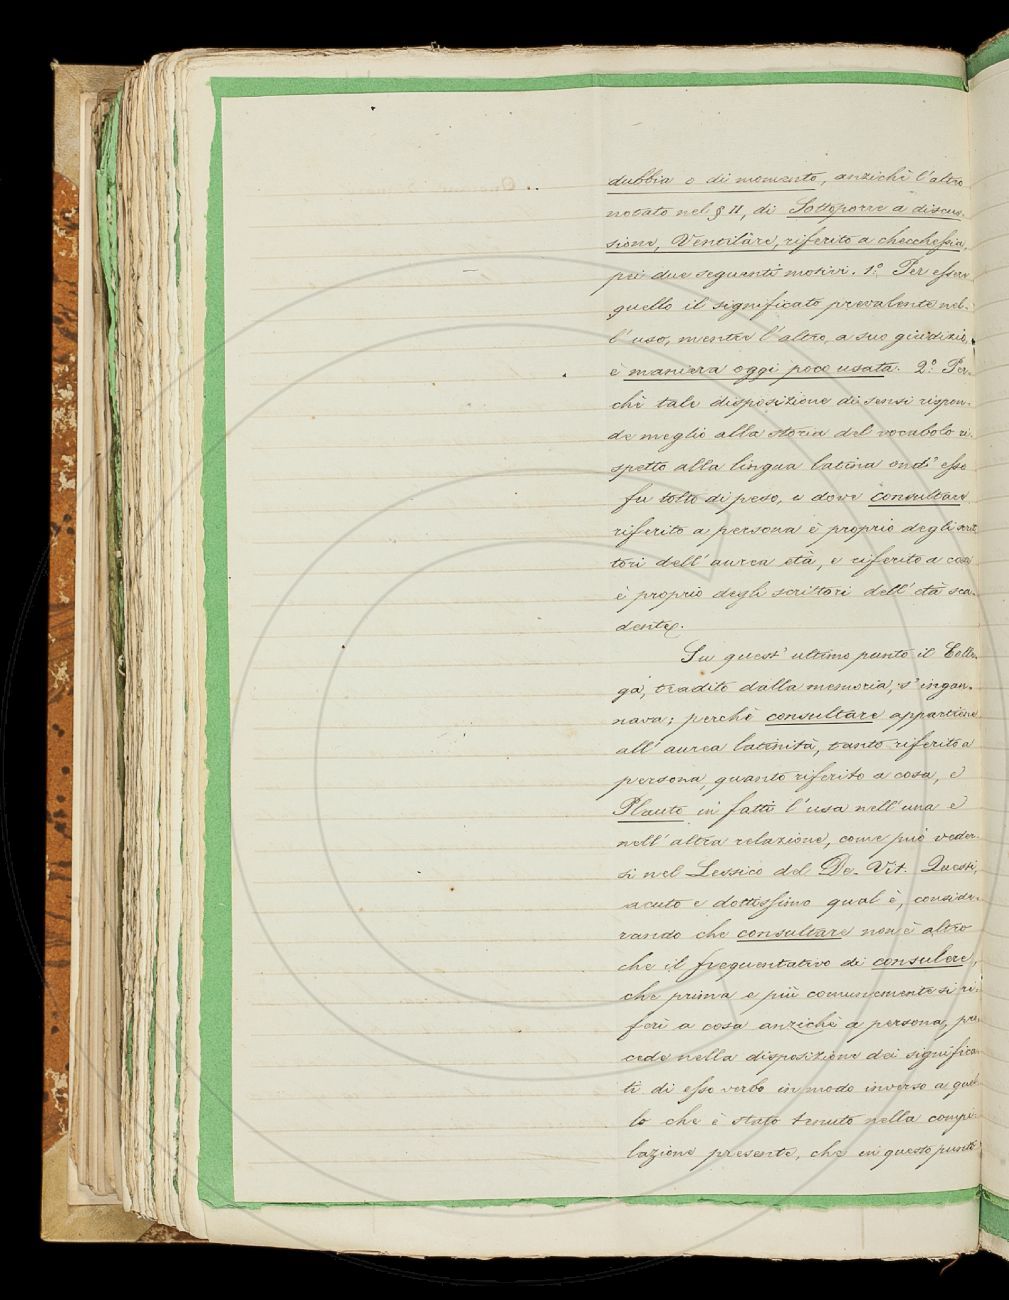 dubbia o di momento, anzichè l'altro
notato nel § II, di Sottoporre a discus-
sione, Ventilare, riferito a checchessia,
pei due seguenti motivi. 1.º Per essere
quello il significato prevalente nel-
l'uso, mentre l'altro, a suo giudizio,
è maniera oggi poco usata. 2.º Per-
chè tale disposizione di sensi rispon-
de meglio alla storia del vocabolo ri-
spetto alla lingua latina ond'esso
fu tolto di peso, e dove consultare
riferito a persona è proprio degli scrit-
tori dell'aurea età, e riferito a cosa
è proprio degli scrittori dell'età sca-
dente.
Su quest'ultimo punto il Colle-
ga, tradito dalla memoria, s'ingan-
nava; perchè consultare appartiene
all'aurea latinità, tanto riferito a
persona, quanto riferito a cosa, e
Plauto in fatti l'usa nell'una e
nell'altra relazione, come può veder-
si nel Lessico del De-Vit. Questi,
acuto e dottissimo qual è, conside-
rando che consultare non è altro
che il frequentativo di consulere,
che prima e più comunemente si ri-
ferì a cosa anzichè a persona, pre-
cede nella disposizione dei significa-
ti di esso verbo in modo inverso a quel-
lo che è stato tenuto nella compi-
lazione presente, che in questo punto